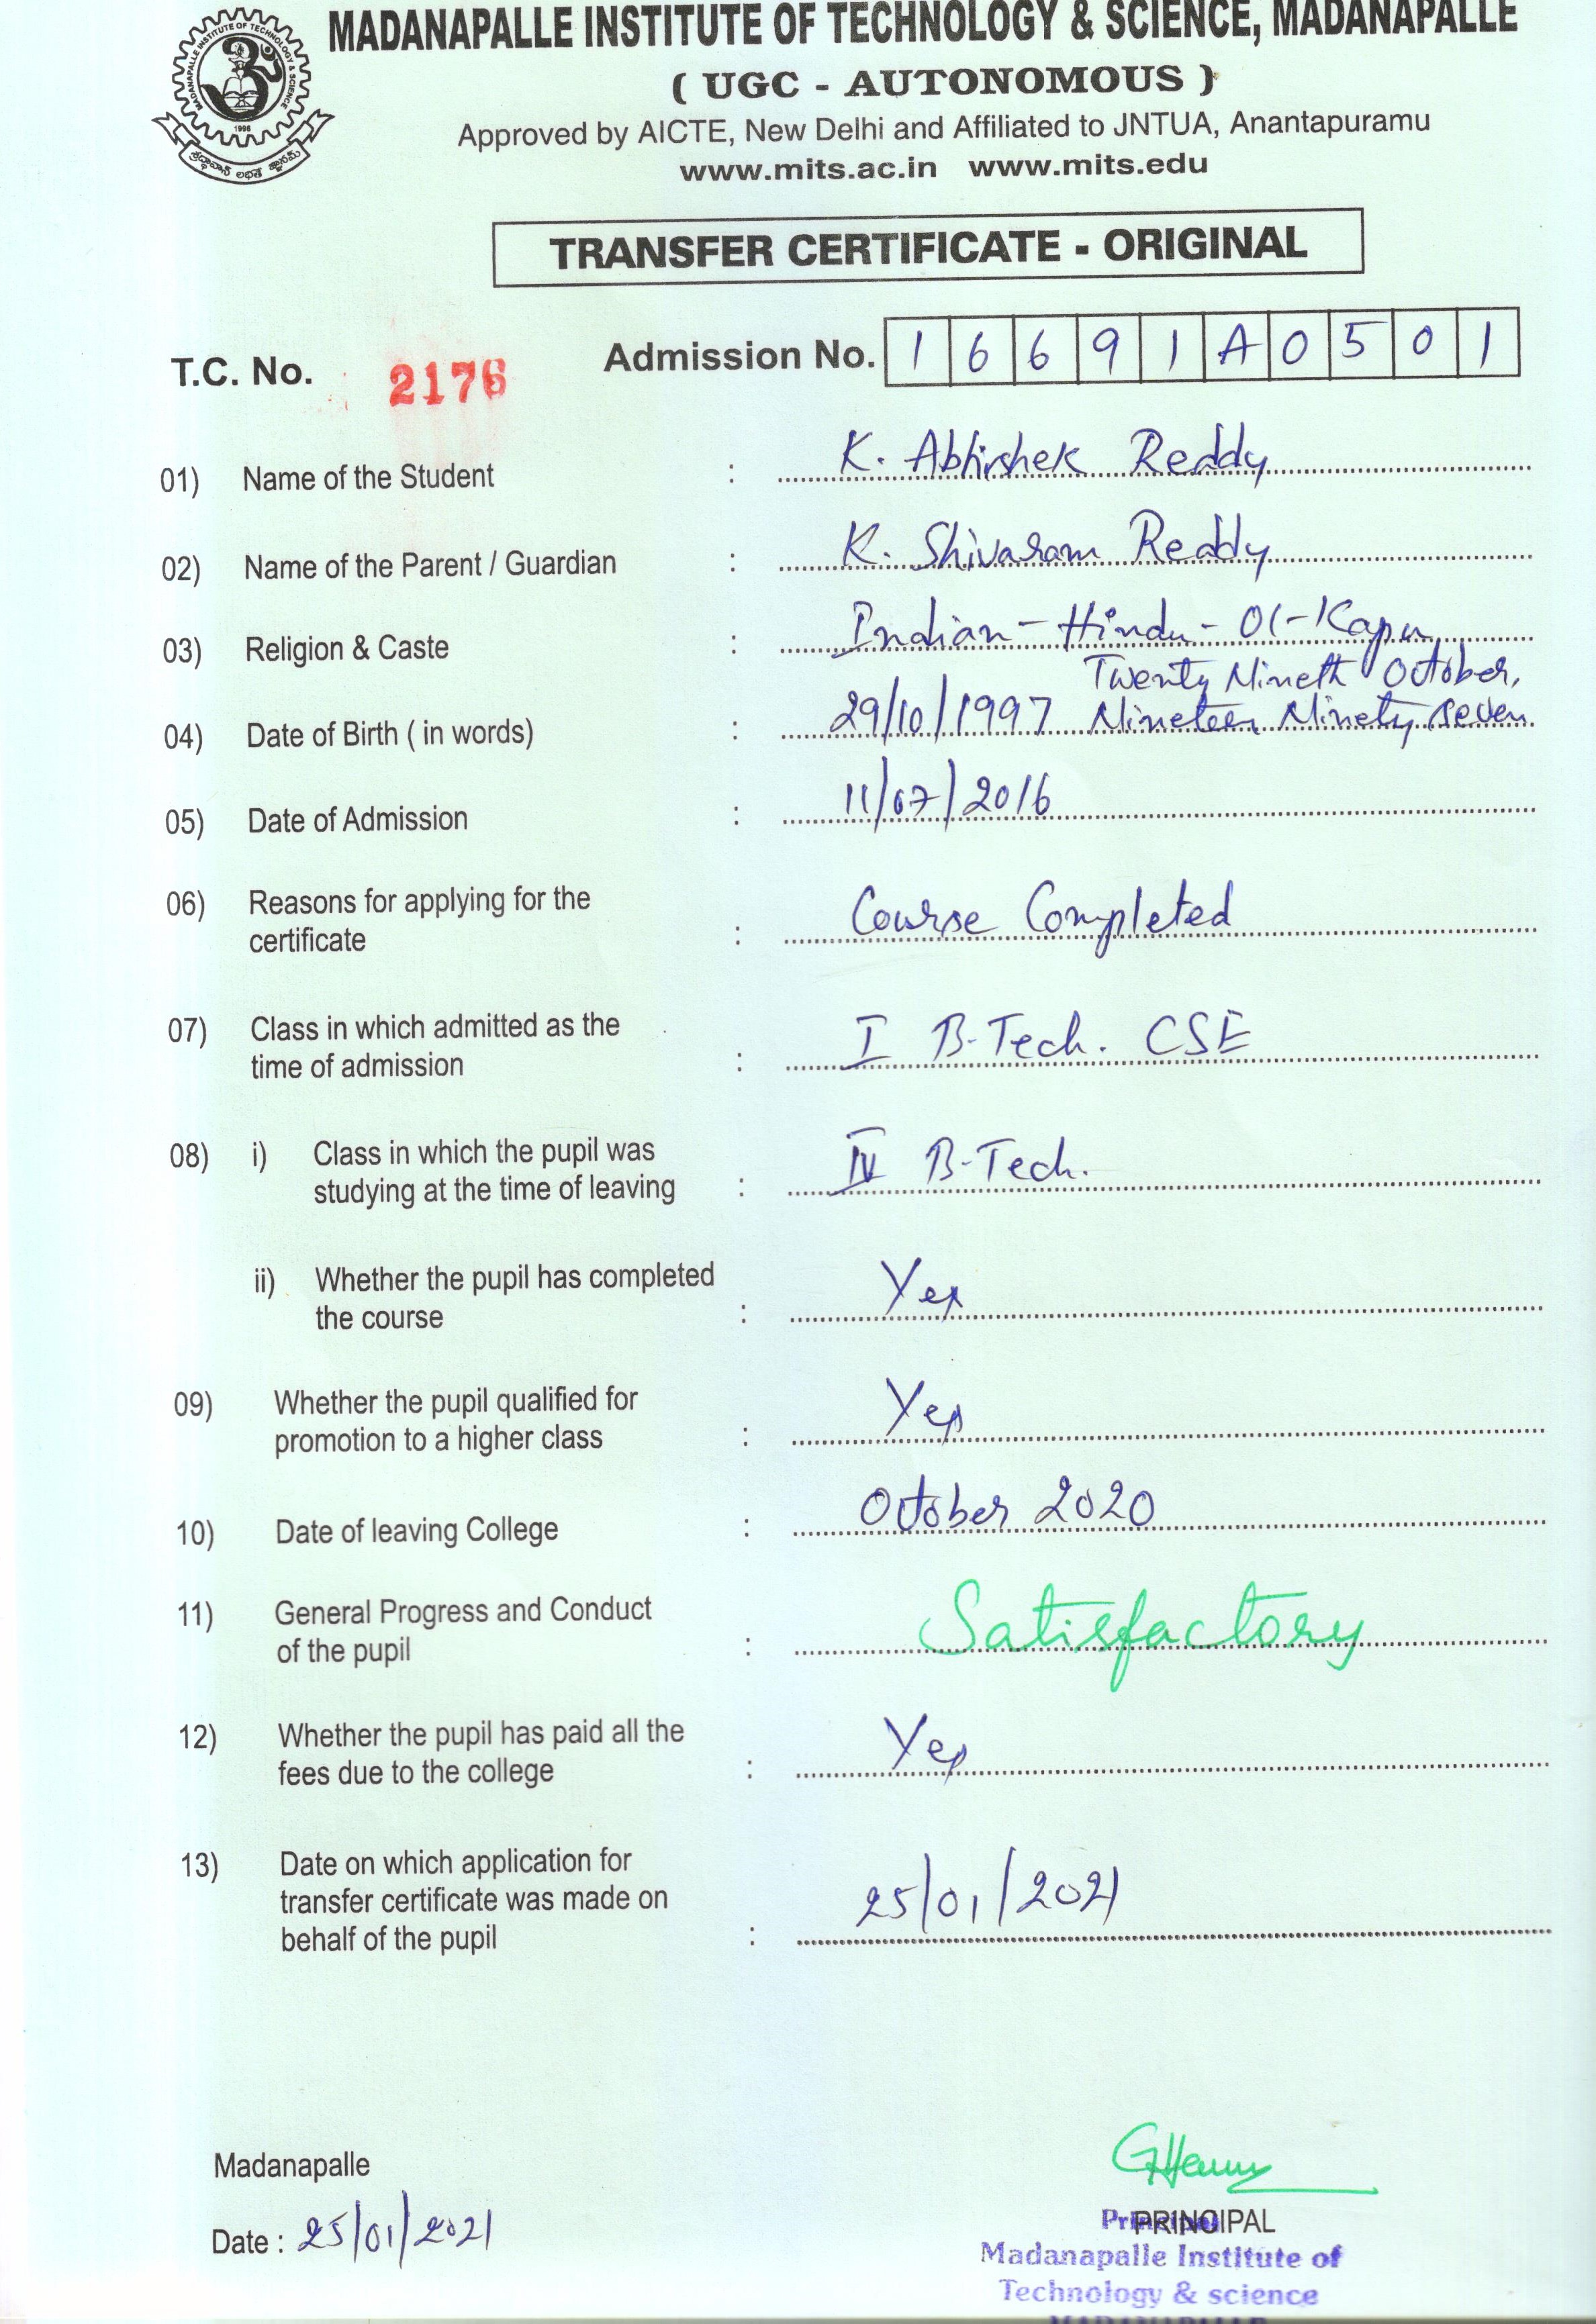 MADANAPALLE INSTITUTE OF TECHNOLOGY & SCIENCE
1998
శ్రద్ధావాన్ లభతే జ్ఞానమ్
MADANAPALLE INSTITUTE OF TECHNOLOGY & SCIENCE, MADANAPALLE
( UGC - AUTONOMOUS )
Approved by AICTE, New Delhi and Affiliated to JNTUA, Anantapuramu
www.mits.ac.in www.mits.edu
TRANSFER CERTIFICATE - ORIGINAL
T.C. No. 2176 Admission No. 16691A0501
01) Name of the Student : K. Abhishek Reddy
02) Name of the Parent / Guardian : K. Shivaram Reddy
03) Religion & Caste : Indian - Hindu - OC - Kapu
Twenty Nineth October,
04) Date of Birth ( in words) : 29/10/1997 Nineteen Ninety Seven
05) Date of Admission : 11/07/2016
06) Reasons for applying for the
certificate : Course Completed
07) Class in which admitted as the
time of admission : I B-Tech. CSE
08) i) Class in which the pupil was
studying at the time of leaving : IV B-Tech.
ii) Whether the pupil has completed
the course : Yes
09) Whether the pupil qualified for
promotion to a higher class : Yes
10) Date of leaving College : October 2020
11) General Progress and Conduct
of the pupil : Satisfactory
12) Whether the pupil has paid all the
fees due to the college : Yes
13) Date on which application for
transfer certificate was made on
behalf of the pupil : 25/01/2021
Madanapalle
Date : 25/01/2021
PRINCIPAL
Principal
Madanapalle Institute of
Technology & science
MADANAPALLE